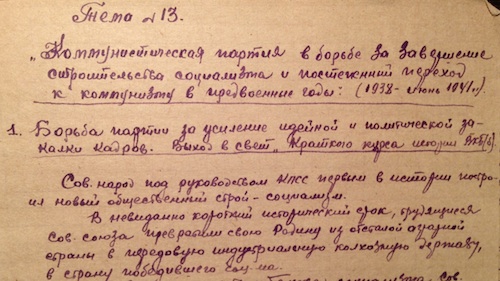 Тема № 13.
„Коммунистическая партия в борьбе за завершение
строительства социализма и постепенный переход
к коммунизму в предвоенные годы: (1938 - июнь 1941г.).
1. Борьба партии за усиление идейной и политической за-
калки кадров. Выход в свет „Краткого курса истории ВКП(б).
Сов. народ под руководством КПСС первым в истории постро-
ил новый общественный строй - социализм.
В невиданно короткий исторический срок, трудящиеся
Сов. союза превратили свою Родину из отсталой аграрной
страны в передовую индустриальную колхозную державу,
в страну победившего соц-ма.